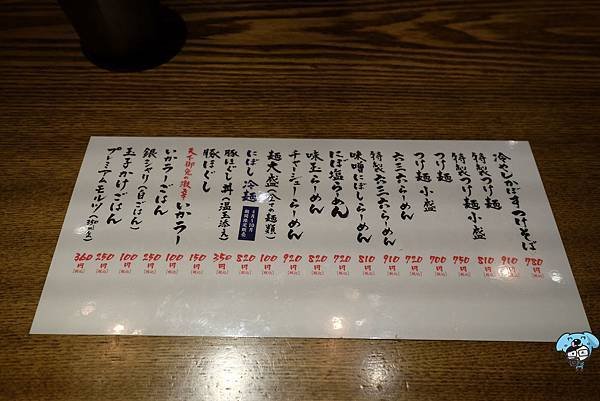 冷やしかぼすつけそば 780円 [税込]
特製つけ麺 910円 [税込]
つけ麺 810円 [税込]
特製つけ麺 小盛 750円 [税込]
つけ麺 小盛 700円 [税込]
六三六らーめん 720円 [税込]
特製六三六らーめん 910円 [税込]
味噌にぼしらーめん 810円 [税込]
にぼ塩らーめん 720円 [税込]
味玉らーめん 820円 [税込]
チャーシューらーめん 920円 [税込]
麺大盛(全ての麺類) 100円 [税込]
にぼし冷麺 820円 [税込]
豚ほぐし丼(温玉添え) 350円 [税込]
豚ほぐし 150円 [税込]
天下御免の激辛 いかラー 100円 [税込]
いかラーごはん 250円 [税込]
銀シャリ(白ごはん) 100円 [税込]
玉子かけごはん 250円 [税込]
プレミアムモルツ 360円 [税込]